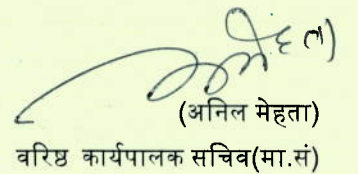 (अनिल मेहता)
वरिष्ठ कार्यपालक सचिव(मा.सं)